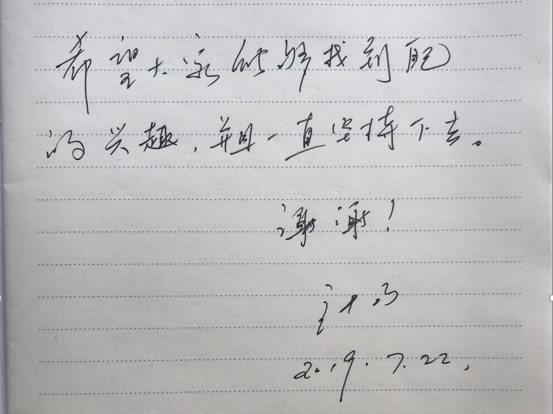 希望大家能够找到自己
的兴趣，并且一直坚持下去。
谢谢！
2019.7.22.